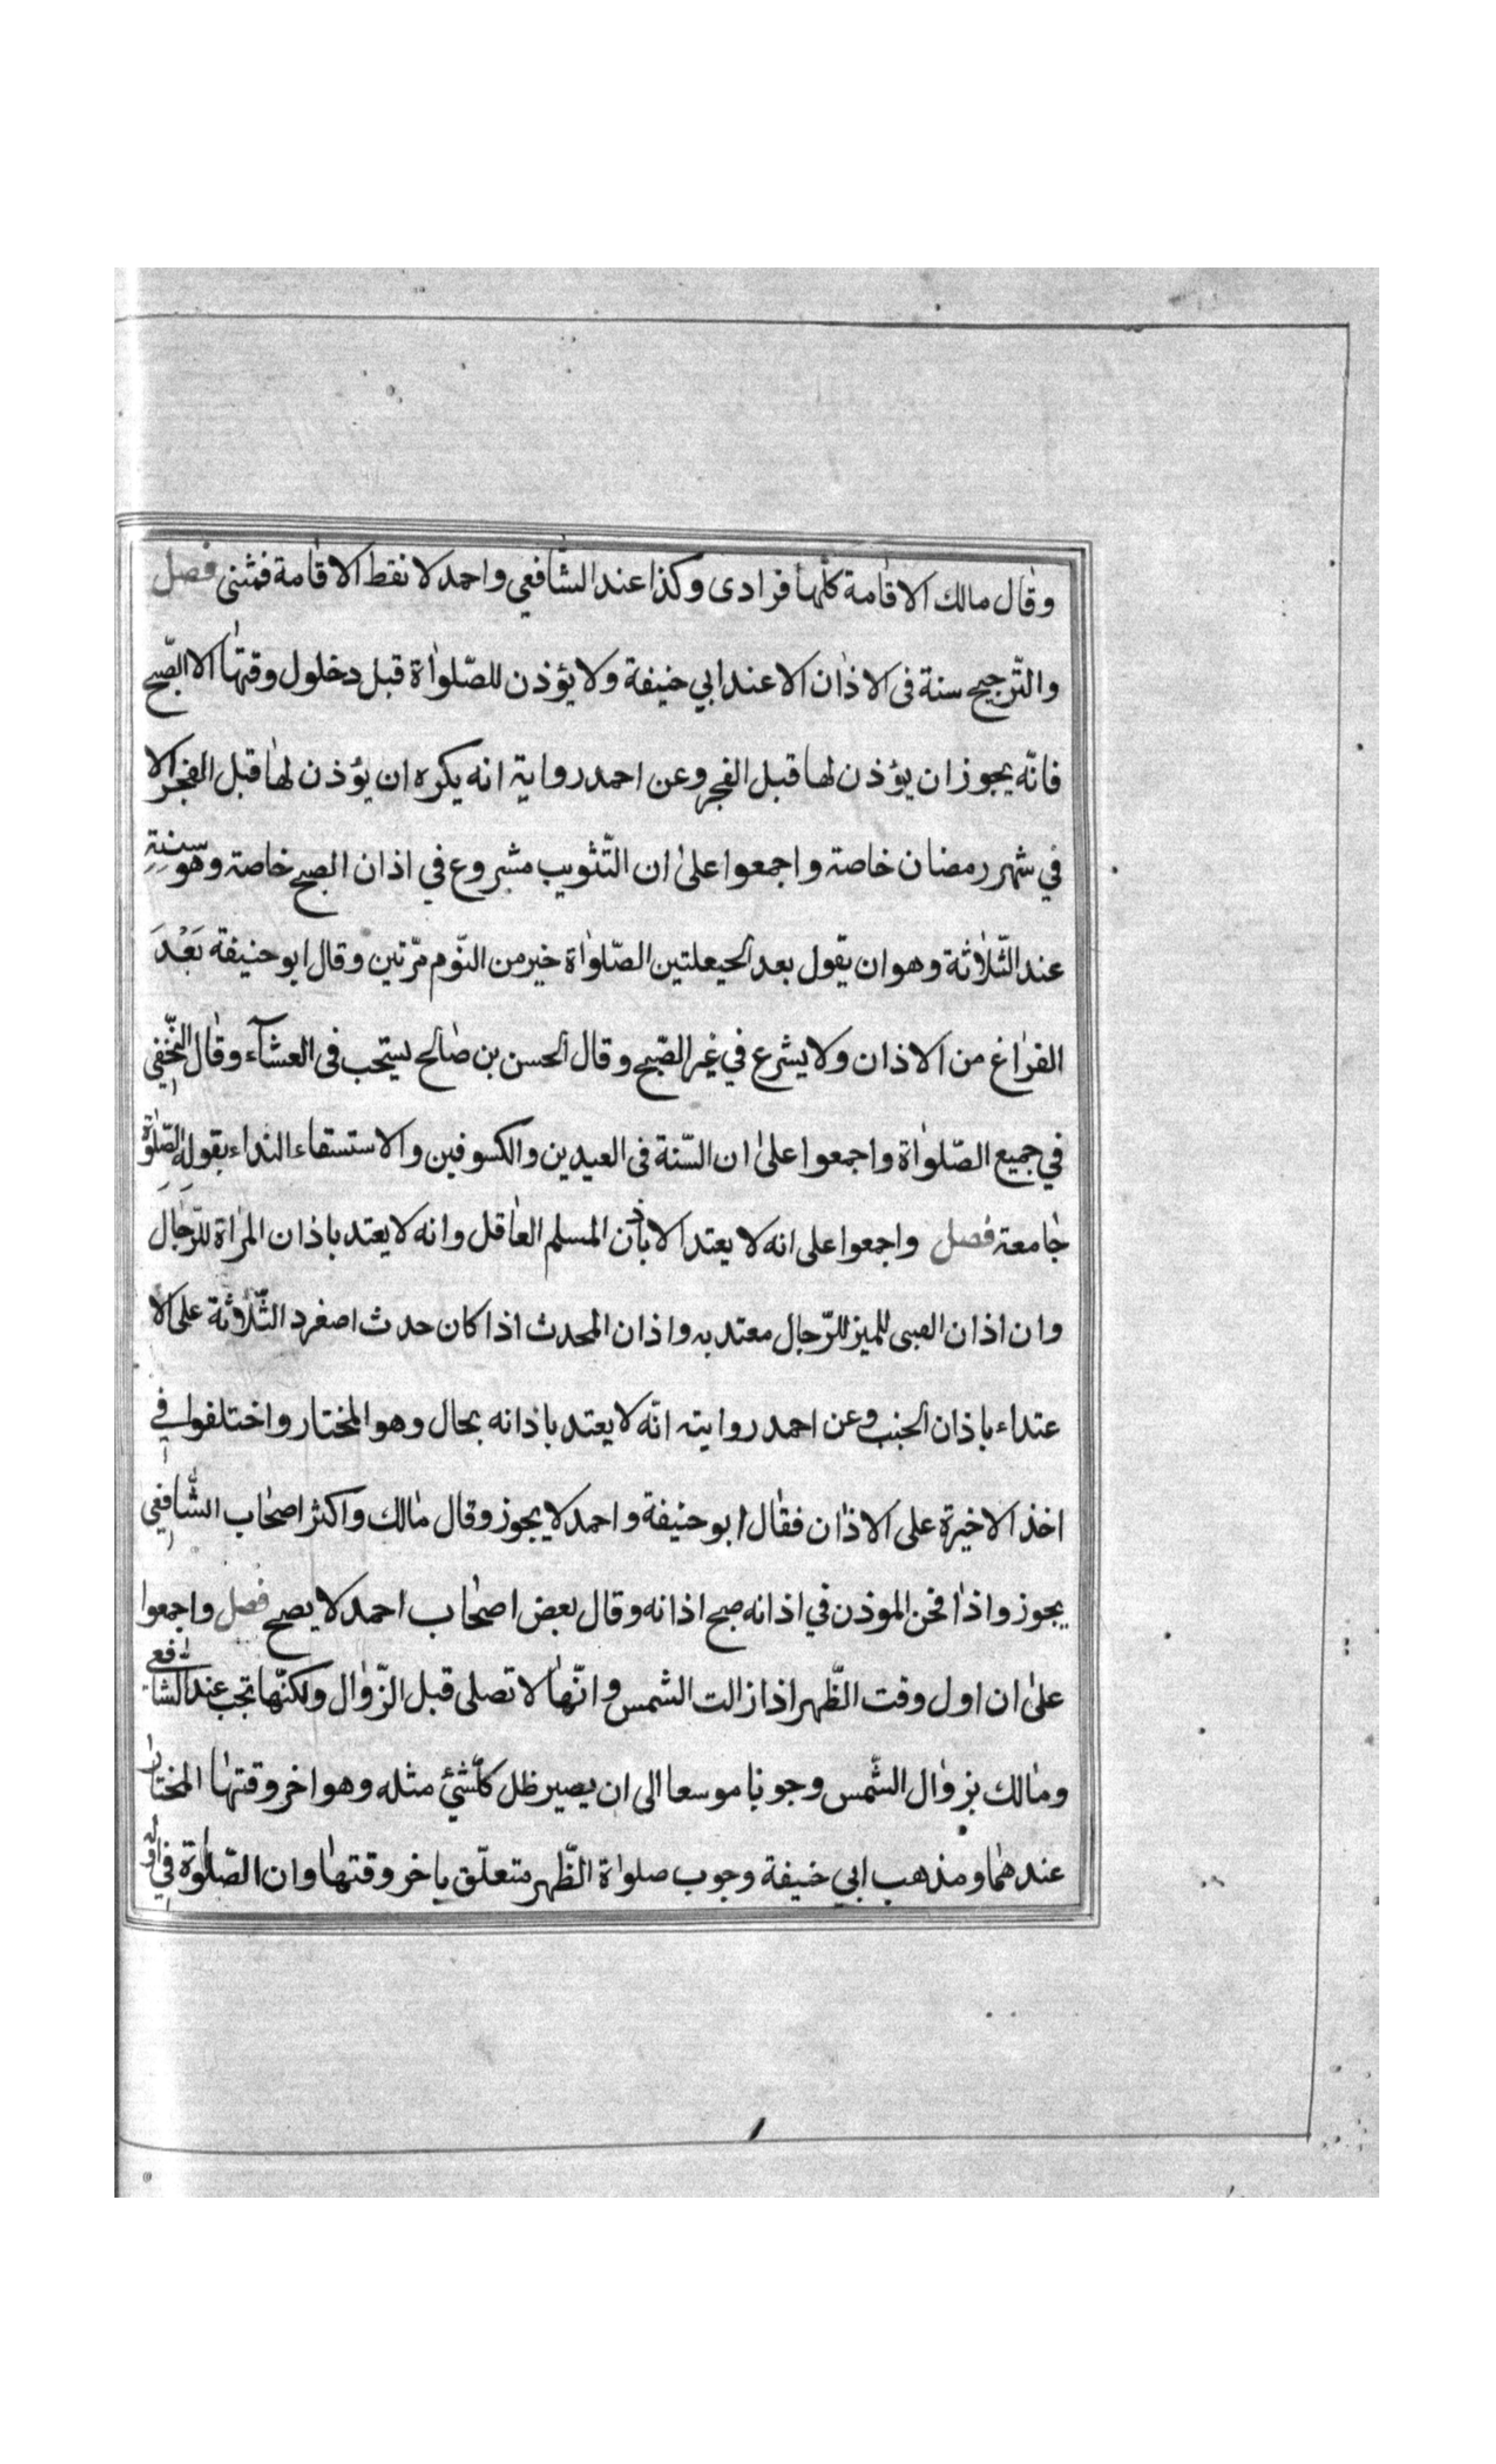 وقال مالك الاقامة كلّها فرادى وكذا عند الشّافعي واحمد لا نقط الاقامة فمثنى فصل
والتّرجيح سنة فى الاذان الا عند ابي حنيفة ولا يؤذن للصّلواة قبل دخلول وقتها الا الصّبح
فانّه يجوز ان يؤذن لها قبل الفجر وعن احمد رواية انه يكره ان يؤذن لها قبل الفجر الا
في شهر رمضان خاصة واجمعوا على ان التّثويب مشروع في اذان الصبح خاصة وهو سنة
عند الثّلاثة وهو ان يقول بعد الحيعلتين الصّلواة خير من النّوم مرّتين وقال ابو حنيفة بَعْدَ
الفراغ من الاذان ولا يشرع في غير الصّبح وقال الحسن بن صالح يستحب فى العشآء وقال النّخفي
في جميع الصّلواة واجمعوا على ان السّنة فى العيدين والكسوفين والاستسقاء النداء بقوله الصّلوة
جامعة فصل واجمعوا على انه لا يعتد الا باذن المسلم العاقل وانه لا يعتد باذان المراة للرّجال
وان اذان الصبى للميز للرّجال معتد به واذان المحدث اذا كان حدث اصغرد الثّلاثة على الا
عتداء باذان الجنب وعن احمد رواية انّه لا يعتد باذانه بحال وهو المختار واختلفوا في
اخذ الاخيرة على الاذان فقال ابو حنيفة واحمد لا يجوز وقال مالك واكثر اصحاب الشّافعي
يجوز واذا فحن الموذن في اذانه صبح اذانه وقال بعض اصحاب احمد لا يصح فصل واجمعوا
على ان اول وقت الظّهر اذا زالت الشمس وانّها لا تصلى قبل الزّوال ولكنّها تجب عند الشافعي
ومالك بزوال الشّمس وجوبا موسعا الى ان يصير ظل كلّشئ مثله وهو اخر وقتها المختار
عندهما ومذهب ابي حنيفة وجوب صلواة الظّهر متعلّق ياخر وقتها وان الصّلوة في اوّله